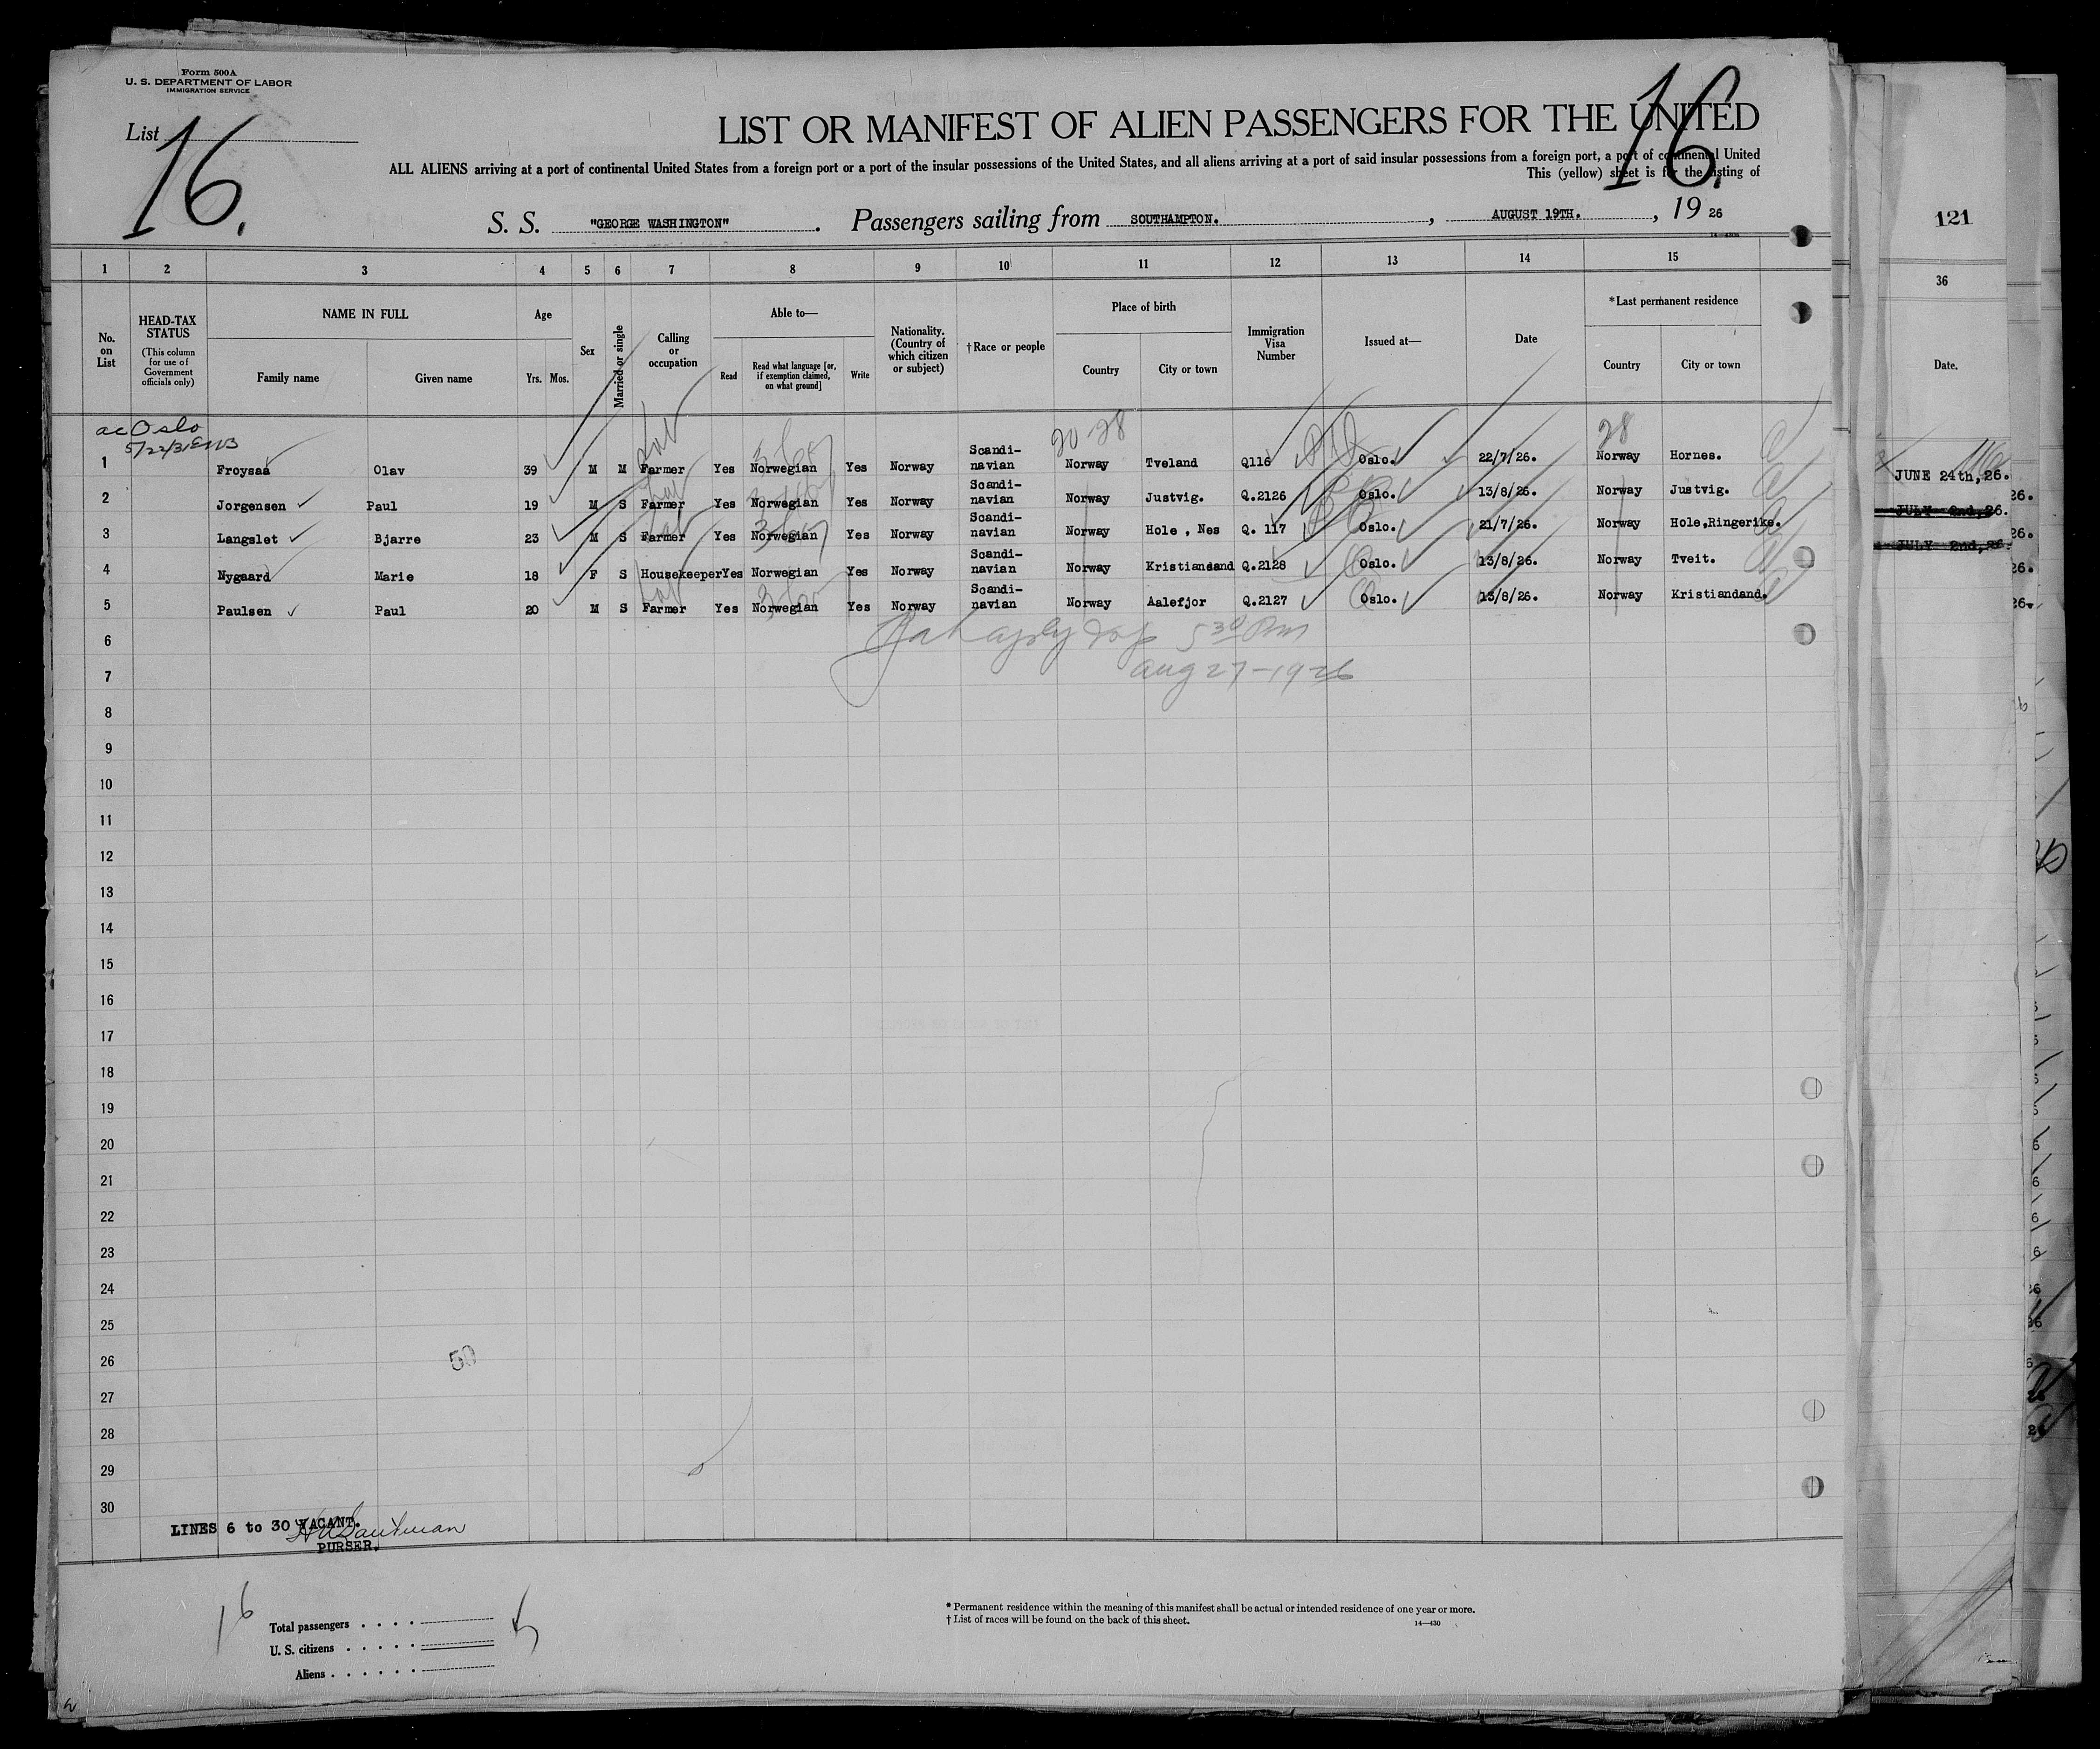 Form 500A
U. S. DEPARTMENT OF LABOR
IMMIGRATION SERVICE
List 16.
16.
LIST OR MANIFEST OF ALIEN PASSENGERS FOR THE UNITED
ALL ALIENS arriving at a port of continental United States from a foreign port or a port of the insular possessions of the United States, and all aliens arriving at a port of said insular possessions from a foreign port, a port of continental United
This (yellow) sheet is for the listing of
S. S. "GEORGE WASHINGTON". Passengers sailing from SOUTHAMPTON., AUGUST 19TH., 19 26
121
1 2 3 4 5 6 7 8 9 10 11 12 13 14 15
36
No. on List
HEAD-TAX STATUS
(This column for use of Government officials only)
NAME IN FULL
Family name
Given name
Age
Yrs. Mos.
Sex
Married or single
Calling or occupation
Able to—
Read
Read what language [or, if exemption claimed, on what ground]
Write
Nationality. (Country of which citizen or subject)
†Race or people
Place of birth
Country
City or town
Immigration Visa Number
Issued at—
Date
*Last permanent residence
Country
City or town
Date.
ac Oslo
20-28
28
1 Froysaa Olav 39 M M Farmer Yes Norwegian Yes Norway Scandi-navian Norway Tveland Q116 Oslo. 22/7/26. Norway Hornes.
2 Jorgensen Paul 19 M S Farmer Yes Norwegian Yes Norway Scandi-navian Norway Justvig. Q.2126 Oslo. 13/8/26. Norway Justvig.
3 Langslet Bjarre 23 M S Farmer Yes Norwegian Yes Norway Scandi-navian Norway Hole , Nes Q. 117 Oslo. 21/7/26. Norway Hole,Ringerike.
4 Nygaard Marie 18 F S Housekeeper Yes Norwegian Yes Norway Scandi-navian Norway Kristiansand Q.2128 Oslo. 13/8/26. Norway Tveit.
5 Paulsen Paul 20 M S Farmer Yes Norwegian Yes Norway Scandi-navian Norway Aalefjor Q.2127 Oslo. 13/8/26. Norway Kristiandand.
JUNE 24th, 26.
JULY 2nd, 26.
JULY 2nd, 26.
5 30 Pm
Aug 27-1926
6
7
8
9
10
11
12
13
14
15
16
17
18
19
20
21
22
23
24
25
26
27
28
29
30
50
LINES 6 to 30 VACANT.
PURSER.
16
Total passengers
U. S. citizens
Aliens
5
* Permanent residence within the meaning of this manifest shall be actual or intended residence of one year or more.
† List of races will be found on the back of this sheet.
14—430